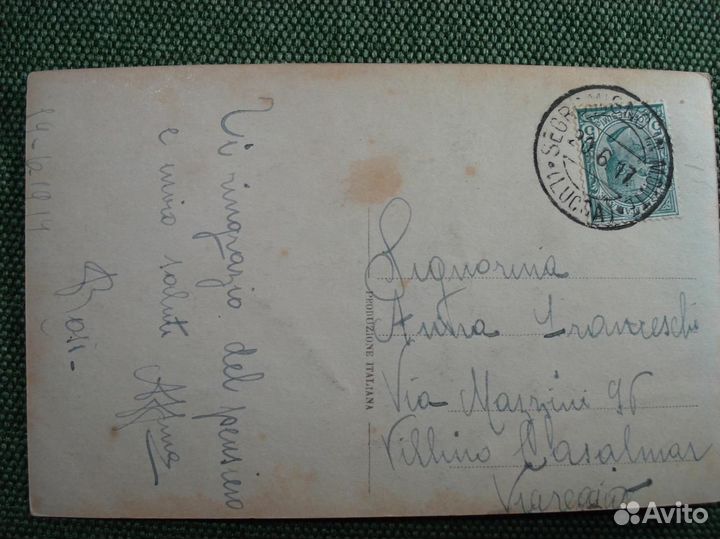 29-6-1917
Vi ringrazio del pensiero
e invio saluti
Affma
PRODUZIONE ITALIANA
SEGROMIGNO
(LUCCA)
26.6.17
Signorina
Anna Franceschi
Via Mazzini 96
Villino Casalmar
Viareggio
Avito